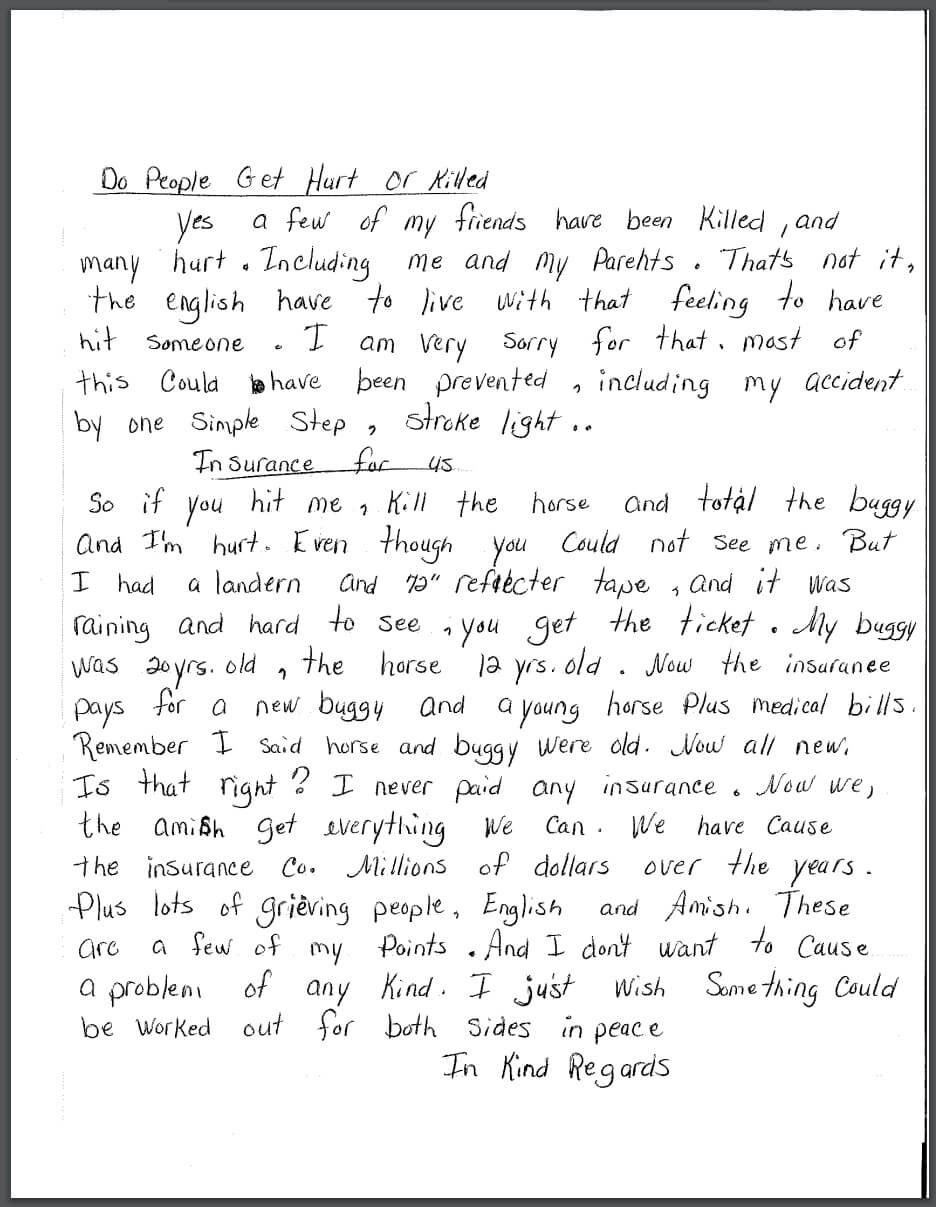 Do People Get Hurt or Killed
Yes a few of my friends have been Killed, and
many hurt. Including me and my Parehts. That's not it,
the english have to live with that feeling to have
hit someone. I am very sorry for that. most of
this Could have been prevented, including my accident
by one Simple Step, stroke light..
Insurance for us
So if you hit me, Kill the horse and total the buggy
and I'm hurt. Even though you Could not see me. But
I had a landern and 72" reflecter tape, and it was
raining and hard to see, you get the ticket. My buggy
was 20 yrs. old, the horse 12 yrs. old. Now the insurance
pays for a new buggy and a young horse Plus medical bills.
Remember I said horse and buggy were old. Now all new.
Is that right? I never paid any insurance. Now we,
the amish get everything we can. We have Cause
the insurance Co. Millions of dollars over the years.
Plus lots of grieving people, English and Amish. These
are a few of my Points. And I don't want to Cause
a problem of any Kind. I just wish Something Could
be worked out for both sides in peace
In Kind Regards